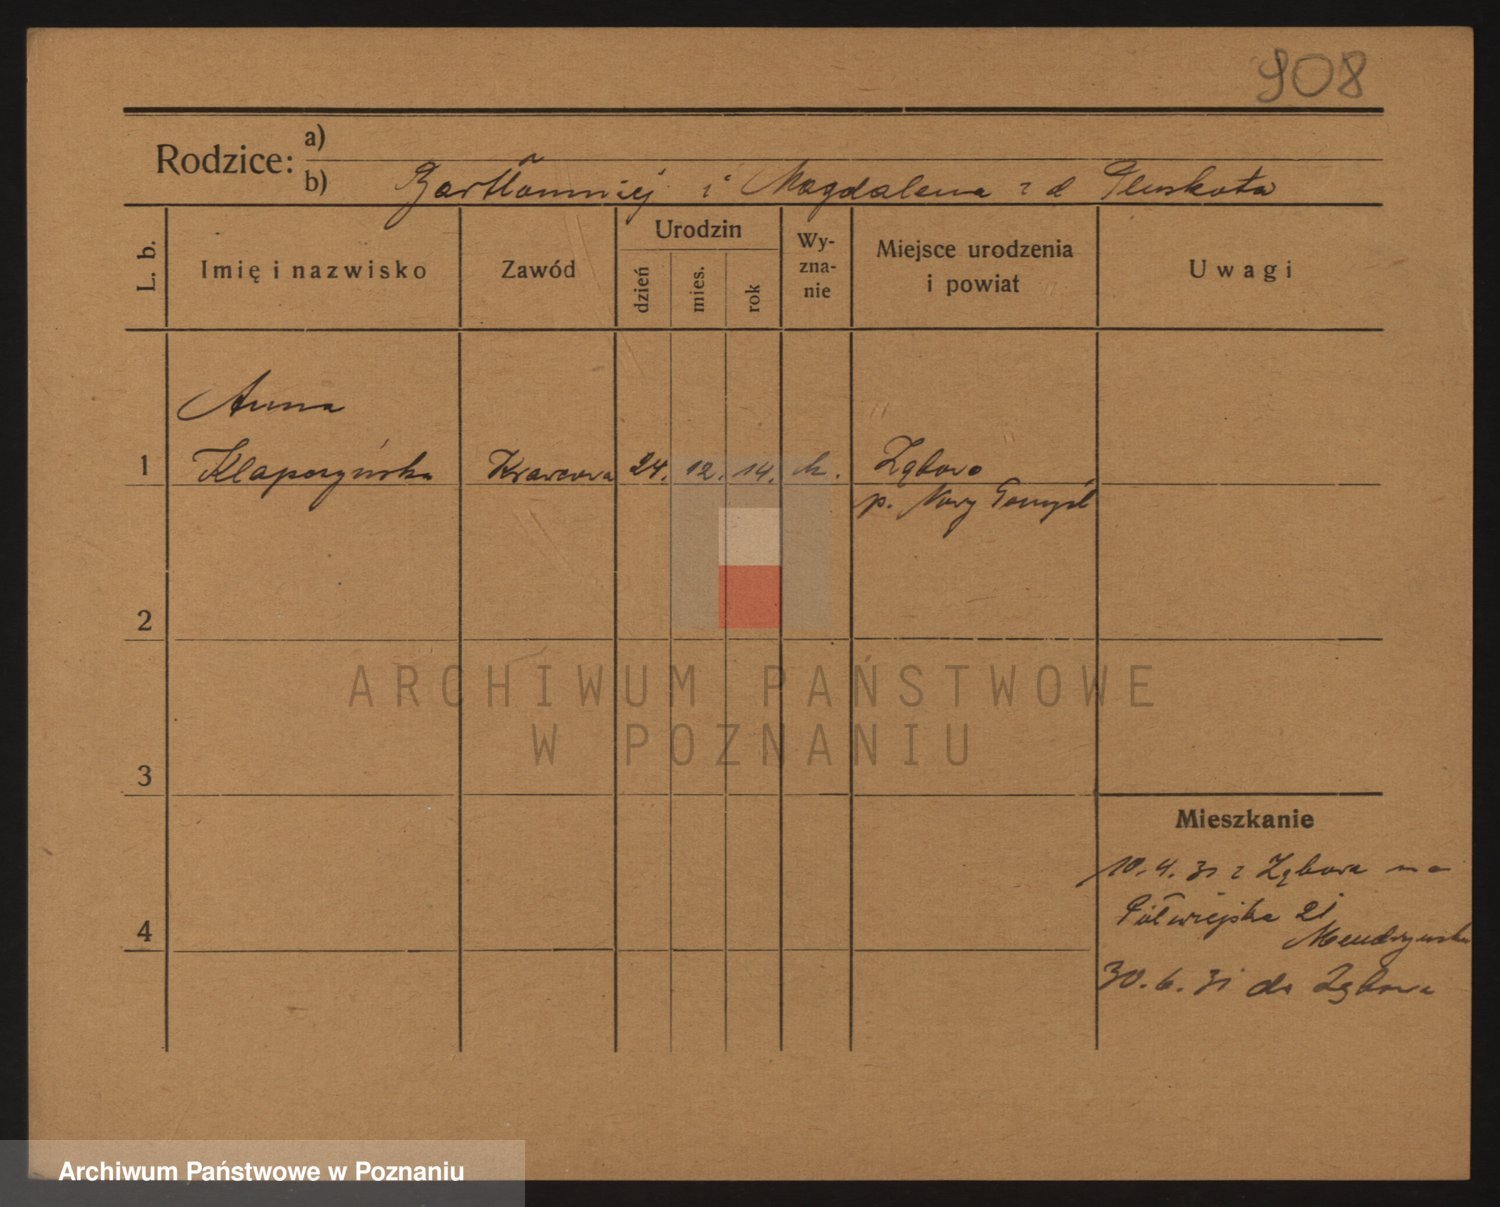 908
Rodzice: a)
b) Bartłomniej i Magdalena z d Pluskota
L. b.
Imię i nazwisko
Zawód
Urodzin
dzień
mies.
rok
Wy-
zna-
nie
Miejsce urodzenia
i powiat
Uwagi
Anna
1 Klapczyńska Krawcowa 24. 12. 14. k. Zębowo
p. Nowy Tomyśl
2
ARCHIWUM PAŃSTWOWE
W POZNANIU
3
Mieszkanie
10.4.31 z Zębowa na
Półwiejska 21
4
30.6.31 do Zębowa
Archiwum Państwowe w Poznaniu